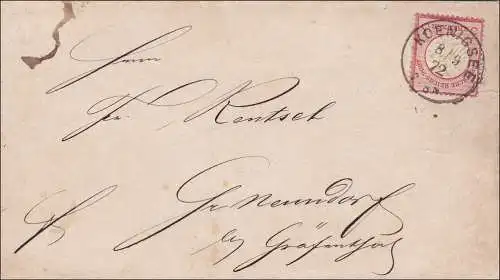 KOENIGSEE
8 9
72
Herrn
Fr. Rentsch
Gr Neundorf
bei Gräfenthal